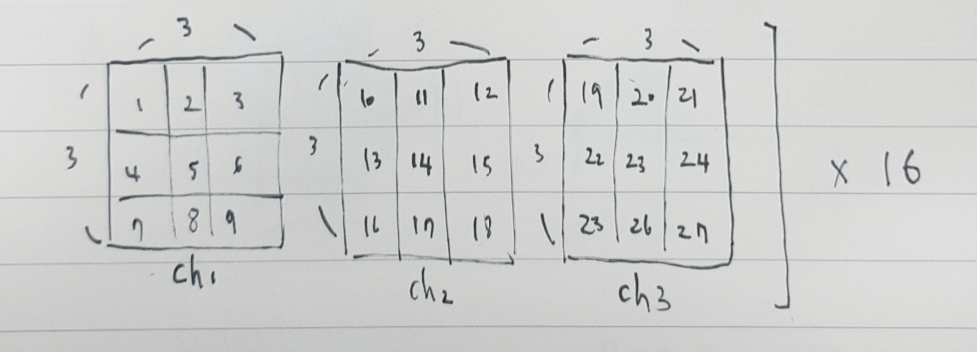 3 3 3
1 2 3 10 11 12 19 20 21
3 4 5 6 3 13 14 15 3 22 23 24 x 16
7 8 9 16 17 18 23 26 27
ch1 ch2 ch3